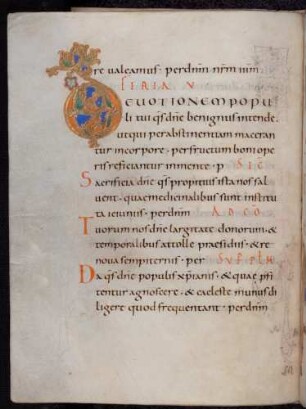 re ualeamus · perdnm nrm ihm
FERIA V
EUOTIONEM POPU
li tui qs dne benignus intende ·
ut qui per abstinentiam maceran
tur in corpore · per fructum boni ope
ris reficiantur in mente · p SEC
Sacrificia dne qs propitius ista nos sal
uent · quae medicinalibus sunt institu
ta ieiuniis · perdnm AD CO
Tuorum nos dne largitate donorum · &
temporalibus attolle praesidiis · & re
noua sempiternis · per SUP PLM
Da qs dne populis xpianis · & quae pfi
tentur agnoscere · & caeleste munus di
ligere quod frequentant · perdnm